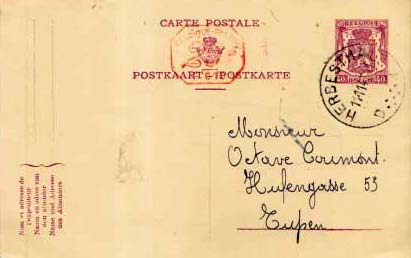 CARTE POSTALE
BELGIQUE
POSTKAART POSTKARTE
40 40
HERBESTHAL
Monsieur
Octave Coumont
Hufengasse 53
Eupen
Nom et adresse de
l'expéditeur
Naam en adres van
den afzender
Name und Adresse
des Absenders